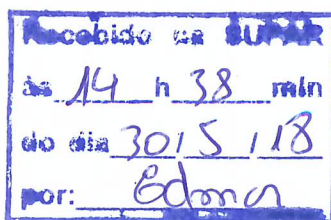 Recebido na SUPAR
às 14 h 38 min
do dia 30/5/18
por: Edmar